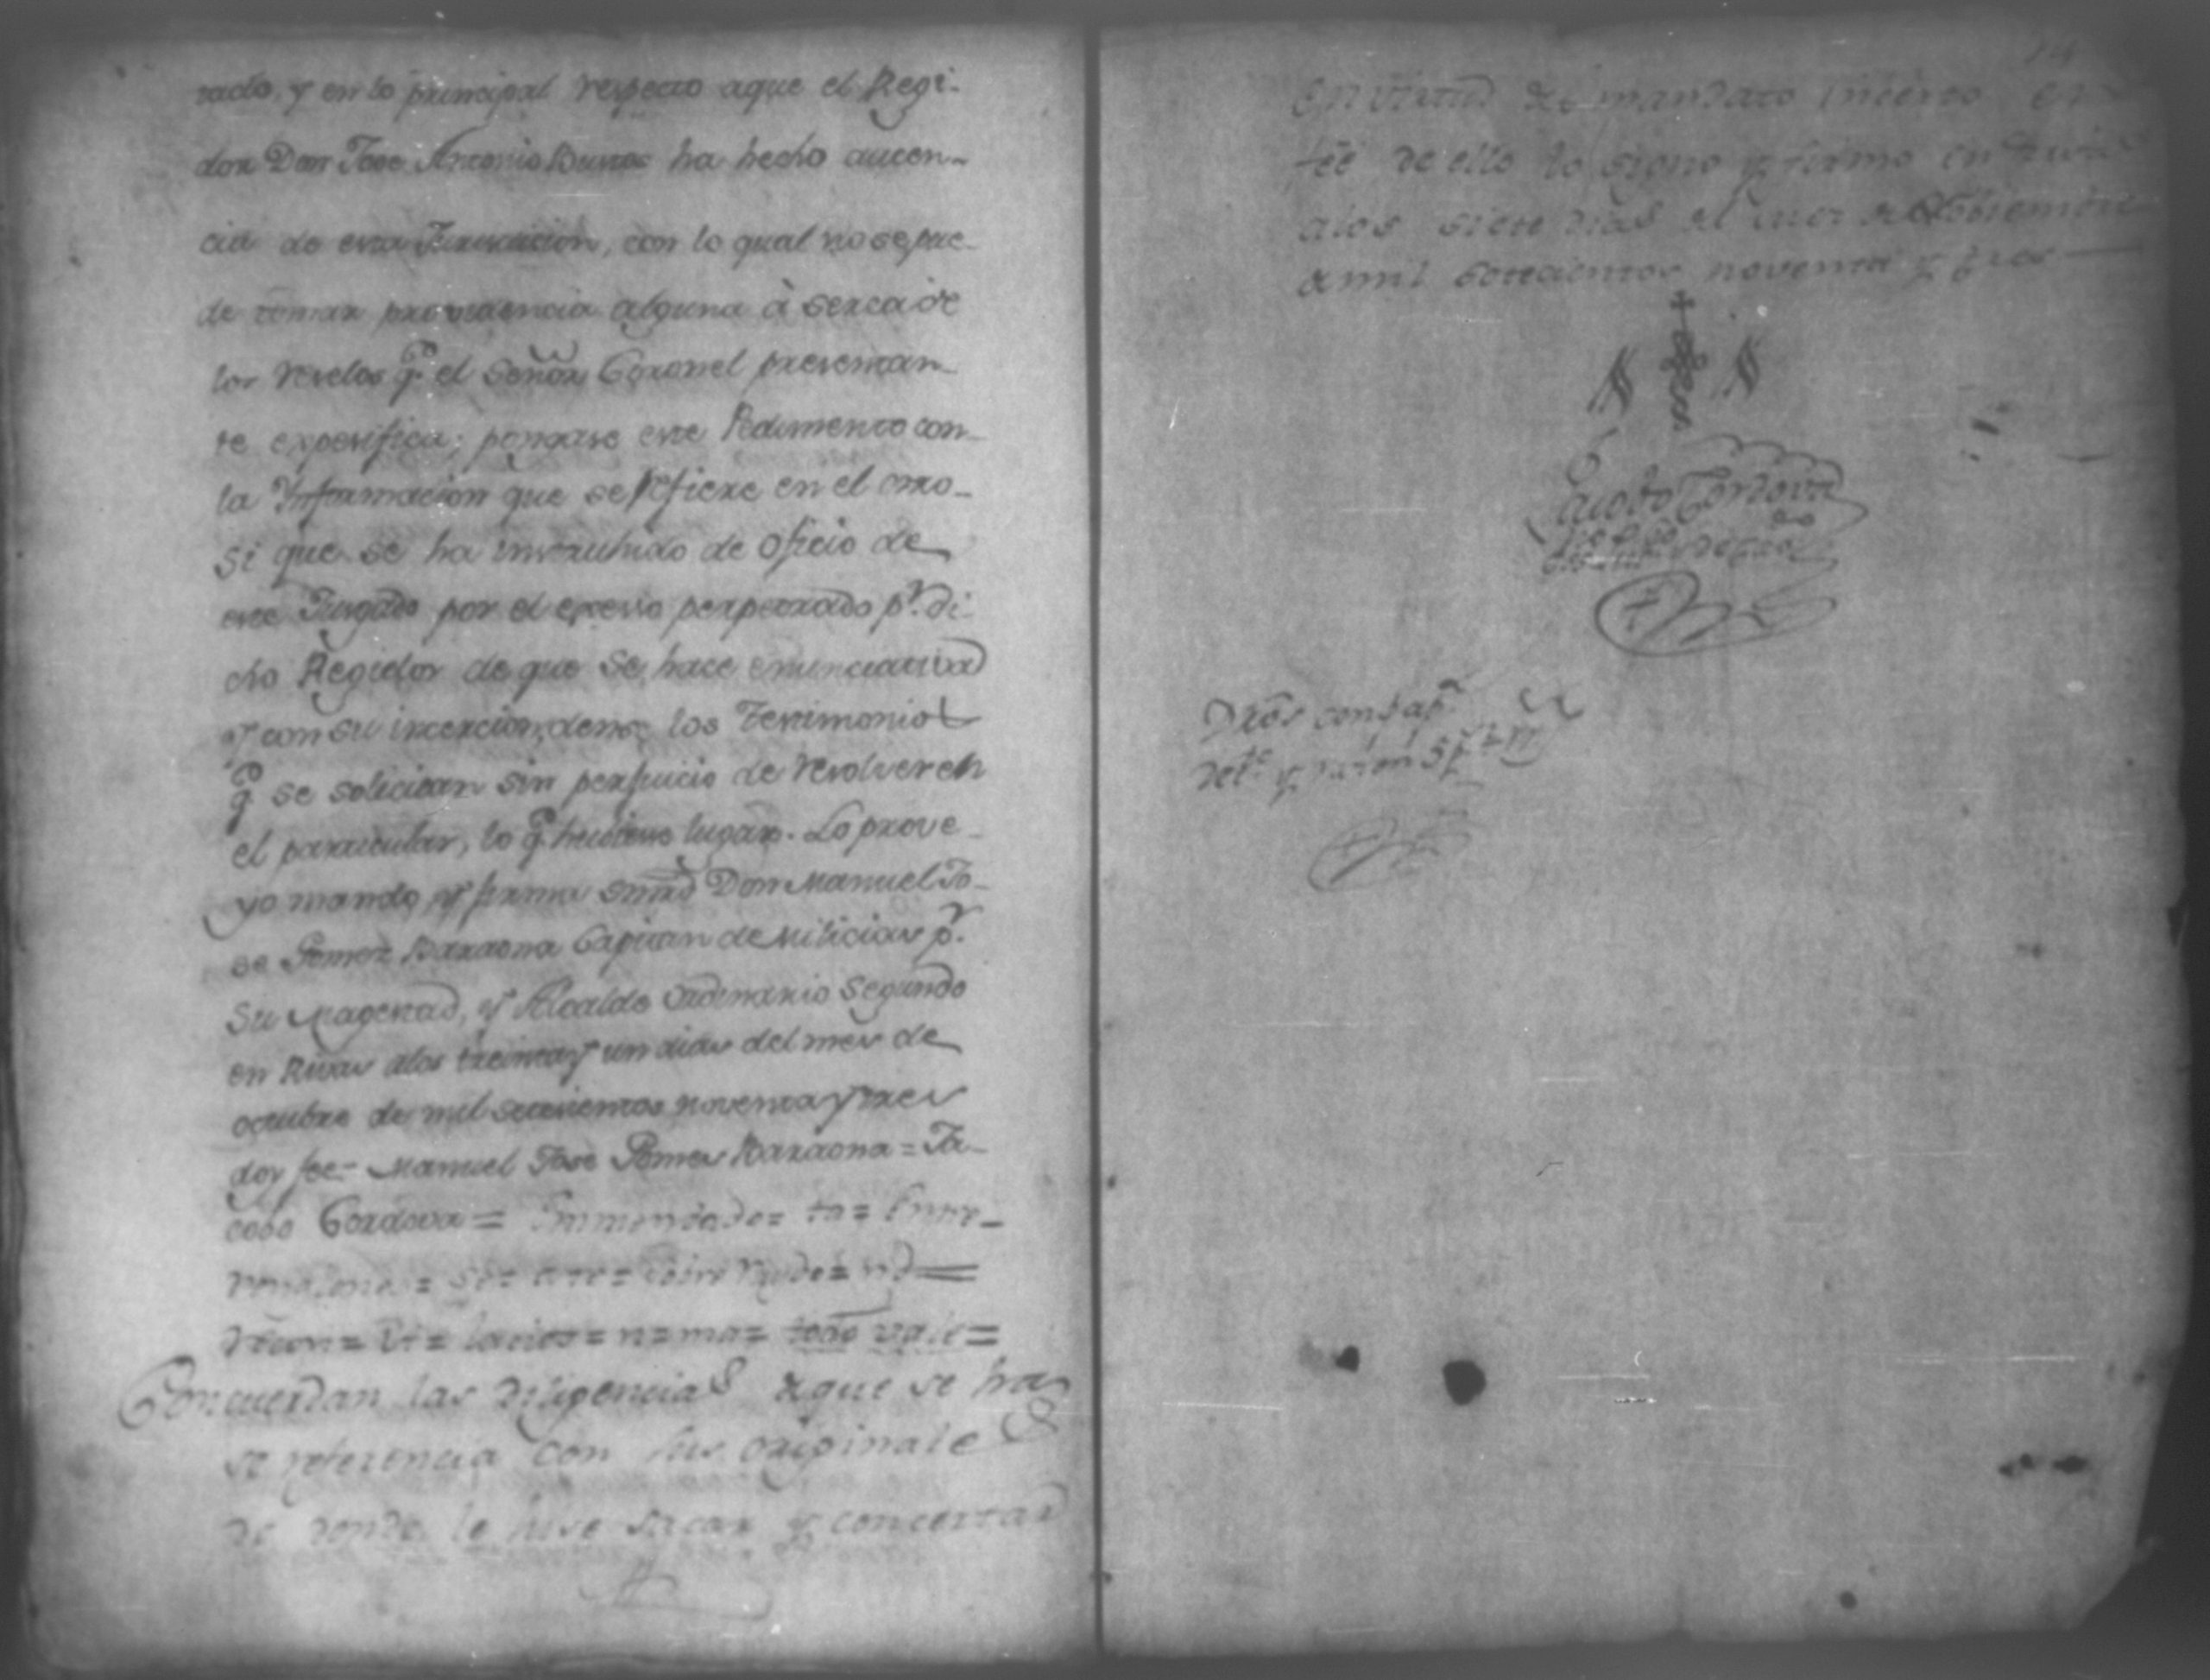 tado, y en lo principal respecto aque el Regi-
dor Don Jose Antonio Bustos ha hecho aucen-
cia de esta Jurisdicion, con lo qual no se pue-
de tomar providencia alguna à serca de
los reselos q.e el Señor Coronel presentan-
te expesifica; pongase este Pedimento con
la Informacion que se refiere en el otro-
si que se ha instruhido de oficio de
este Jusgado por el exceso perpetrado p.r di-
cho Regidor de que se hace enunciativa
y con su incercion, dense los Testimonios
q.e se solicitan sin perjuicio de resolver en
el particular, lo q.e hubiere lugar. Lo prove-
yo mando, y firma smrd Don Manuel Jo-
se Gomez Baraona Capitan de Milicias p.r
Su Magestad, y Alcalde Ordinario Segundo
en Rivas alos treinta y un dias del mes de
octubre de mil setecientos noventa y tres
doy fee= Manuel Jose Gomes Baraona = Ja-
cobo Cordova = Enmendado= ta= Entre-
renglones =
= n= ma= todo vale=
Concuerdan las diligencias de que se ha
se referencia con sus originales
de donde le hise sacar y concertar
En virtud del mandato incerto en
feé de ello lo signo y firmo en Rivas
alos siete dias del mes de Nobiembre
de mil setecientos noventa y tres
Jacobo Cordova
Dros con pap.l